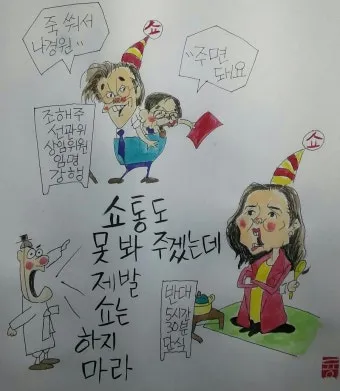 쇼
죽 쒀서
나경원"
"주면
돼요
조해주
선관위
상임위원
임명
강행
쇼
쇼통도
못 봐 주겠는데
제발
쇼는
하지
마라
반대
5시간
30분
단식